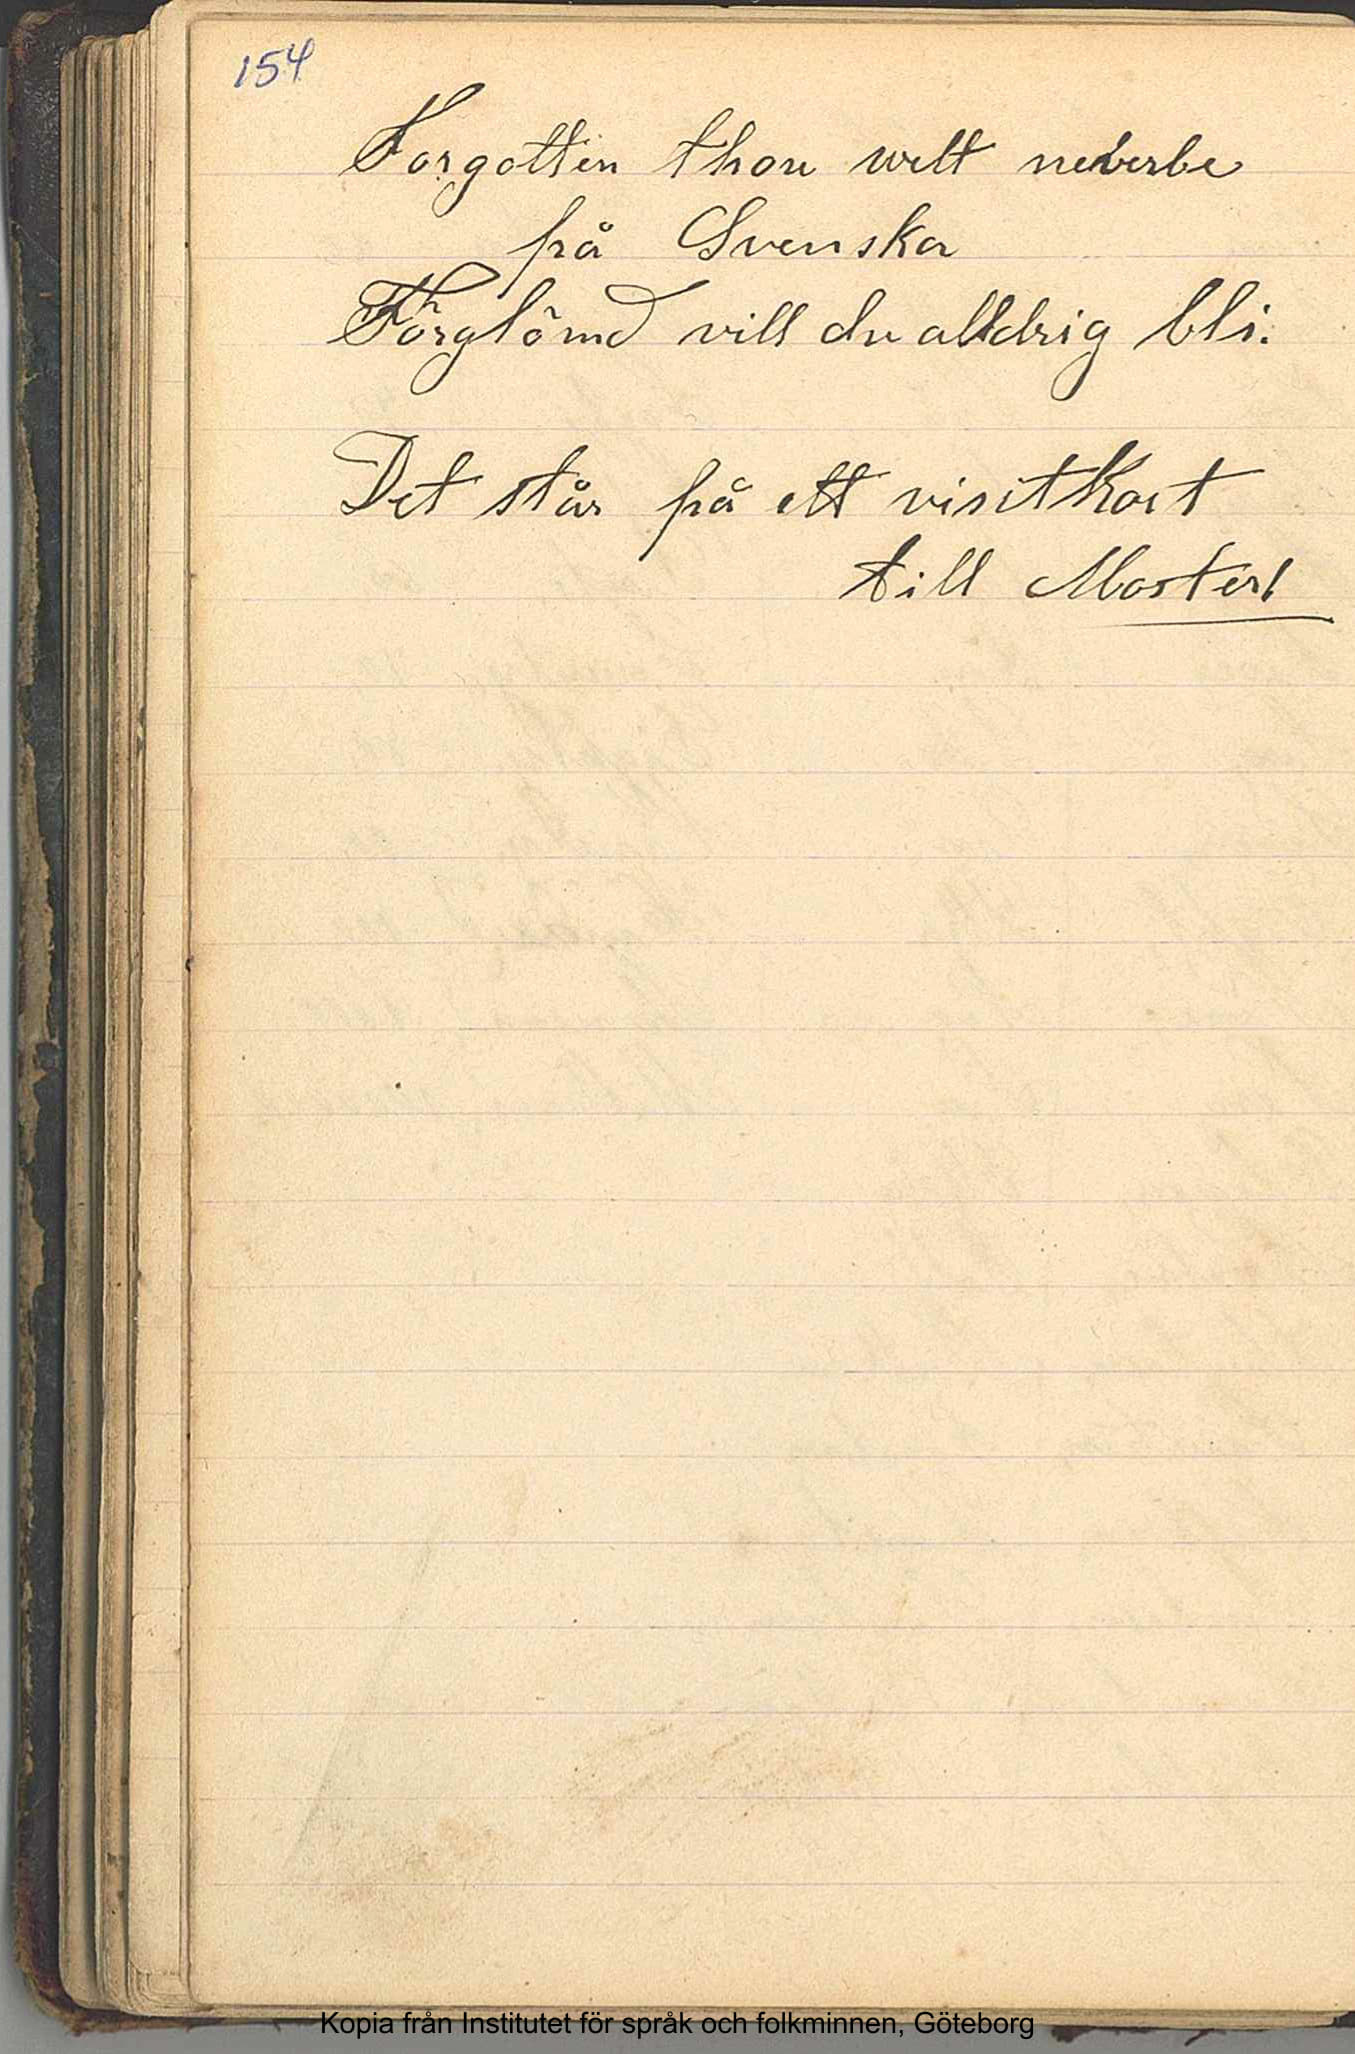 154
Forgotten thou welt neverbe
på Svenska
Förglömd vill du alldrig bli.
Det står på ett visitkort
till Moster!
Kopia från Institutet för språk och folkminnen, Göteborg